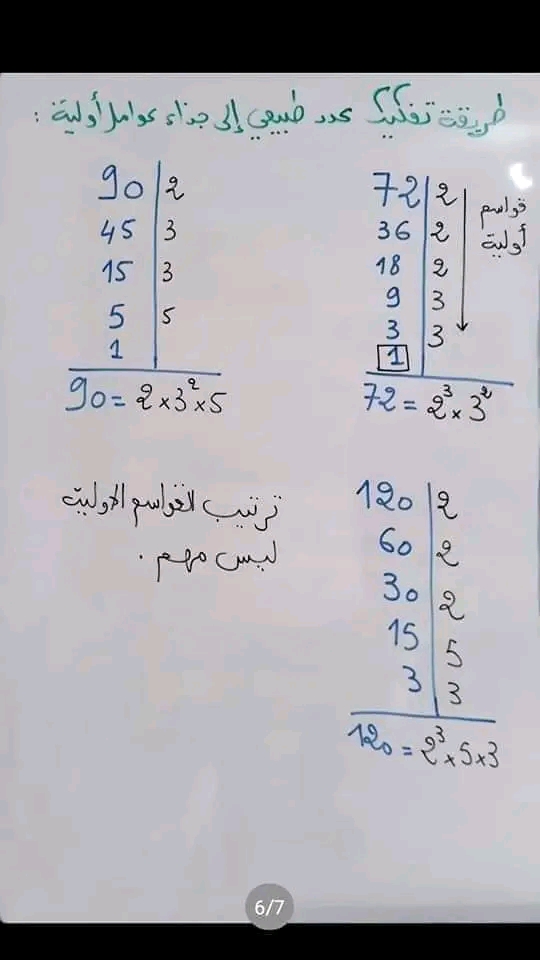 طريقة تفكيك عدد طبيعي إلى جذاء عوامل أولية :
72 2
36 2
18 2
9 3
3 3
1
قواسم
أولية
72 = 2³ × 3²
90 2
45 3
15 3
5 5
1
90 = 2 × 3² × 5
120 2
60 2
30 2
15 5
3 3
120 = 2³ × 5 × 3
ترتيب القواسم الأولية
ليس مهم .
6/7